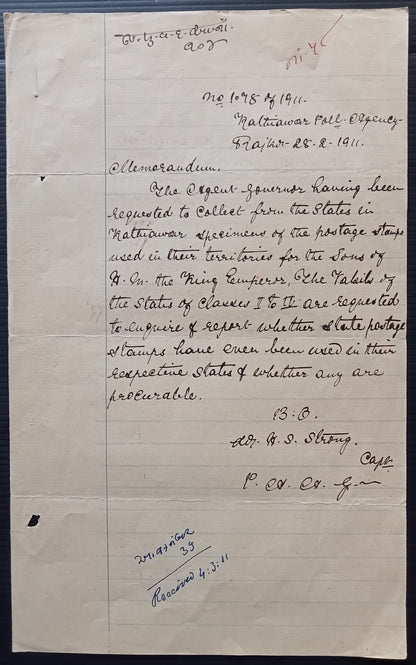 No 1078 of 1911.
Kathiawar Poll. Agency
Rajkot 28-2-1911.
Memorandum.
The Agent Governor having been
requested to collect from the States in
Kathiawar specimens of the postage stamps
used in their territories for the Sons of
H. M. the King Emperor, The Vakils of
the States of Classes I to II are requested
to enquire & report whether state postage
stamps have even been used in their
respective states & whether any are
procurable.
B. O.
H. S. Strong.
Capt.
P. A. A. G.
39
Received 4.3.11